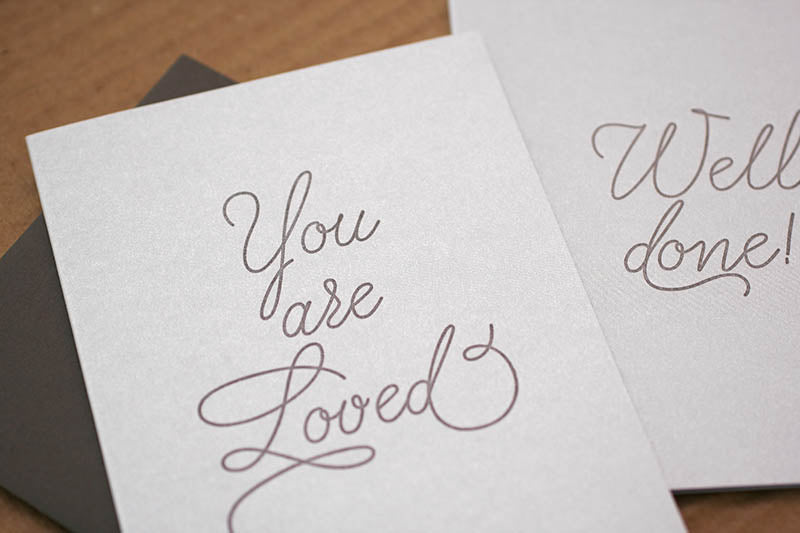 You
are
Loved
Well
done!